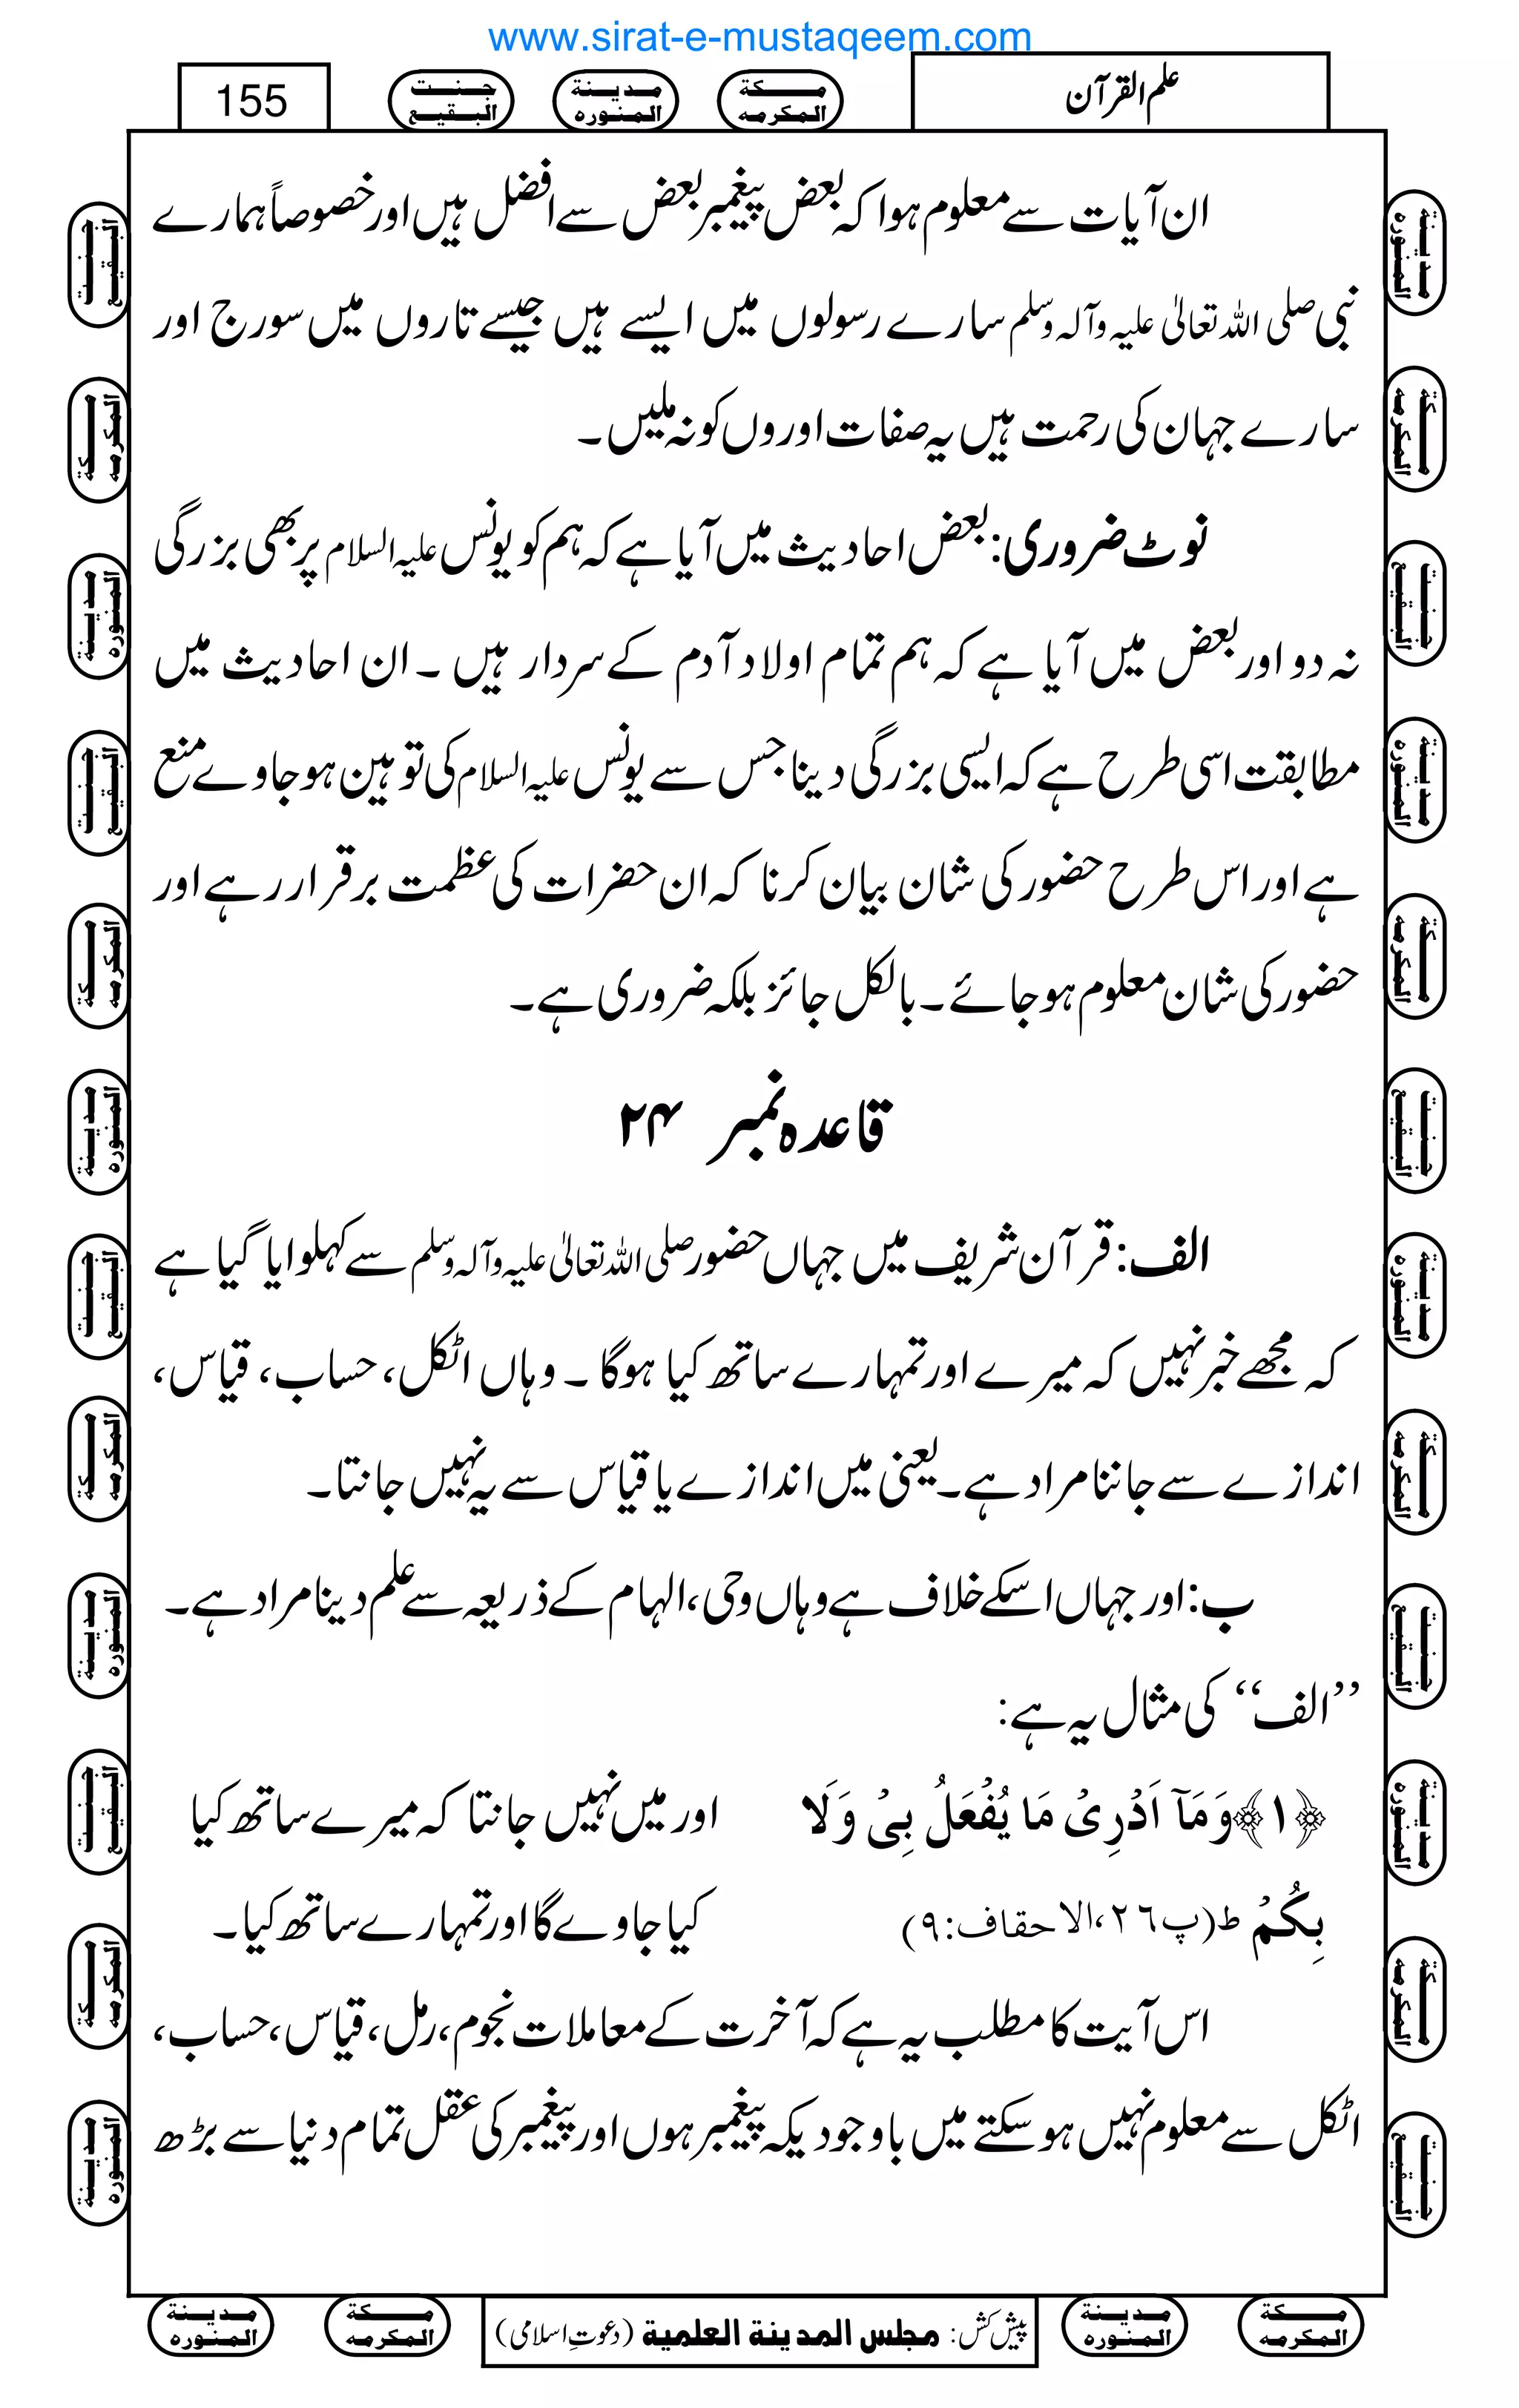 www.sirat-e-mustaqeem.com
علم القرآن
مكة المكرمه
مدينة المنوره
جنت البقيع
155
ان آیات سے معلوم ہوا کہ بعض پیغمبر بعض سے افضل ہیں اور خصوصاً ہمارے
نبی صلی اللہ تعالیٰ علیہ وآلہ وسلم سارے رسولوں میں ایسے ہیں جیسے تاروں میں سورج اور
سارے جہان کی رحمت ہیں یہ صفات اوروں کو نہ ملیں۔
نوٹ ضروری: بعض احادیث میں آیا ہے کہ ہم کو یونس علیہ السلام پر بھی بزرگی
نہ دو اور بعض میں آیا ہے کہ ہم تمام اولاد آدم کے سردار ہیں ۔ ان احادیث میں
مطابقت اسی طرح ہے کہ ایسی بزرگی دینا جس سے یونس علیہ السلام کی توہین ہو جاوے منع
ہے اور اس طرح حضور کی شان بیان کرنا کہ ان حضرات کی عظمت برقرار رہے اور
حضور کی شان معلوم ہو جائے ۔ بالکل جائز بلکہ ضروری ہے۔
قاعدہ نمبر ۲۴
الف: قرآن شریف میں جہاں حضور صلی اللہ تعالیٰ علیہ وآلہ وسلم سے کہلوایا گیا ہے
کہ مجھے خبر نہیں کہ میرے اور تمہارے ساتھ کیا ہوگا ۔ وہاں اٹکل، حساب، قیاس،
اندازے سے جاننا مراد ہے۔ یعنی میں اندازے یا قیاس سے یہ نہیں جانتا۔
ب: اور جہاں اسکے خلاف ہے وہاں وحی، الہام کے ذریعہ سے علم دینا مراد ہے۔
’’الف‘‘ کی مثال یہ ہے:
﴿۱﴾ وَمَاۤ اَدْرِیْ مَا یُفْعَلُ بِیْ وَ لَا اور میں نہیں جانتا کہ میرے ساتھ کیا
بِكُمْ ط (پ٢٦، الاحقاف:٩) کیا جاوے گا اور تمہارے ساتھ کیا۔
اس آیت کا مطلب یہ ہے کہ آخرت کے معاملات نجوم، رمل، قیاس، حساب،
اٹکل سے معلوم نہیں ہو سکتے میں باوجود یکہ پیغمبر ہوں اور پیغمبر کی عقل تمام دنیا سے بڑھ
پیش کش: مجلس المدينة العلمية (دعوتِ اسلامی)